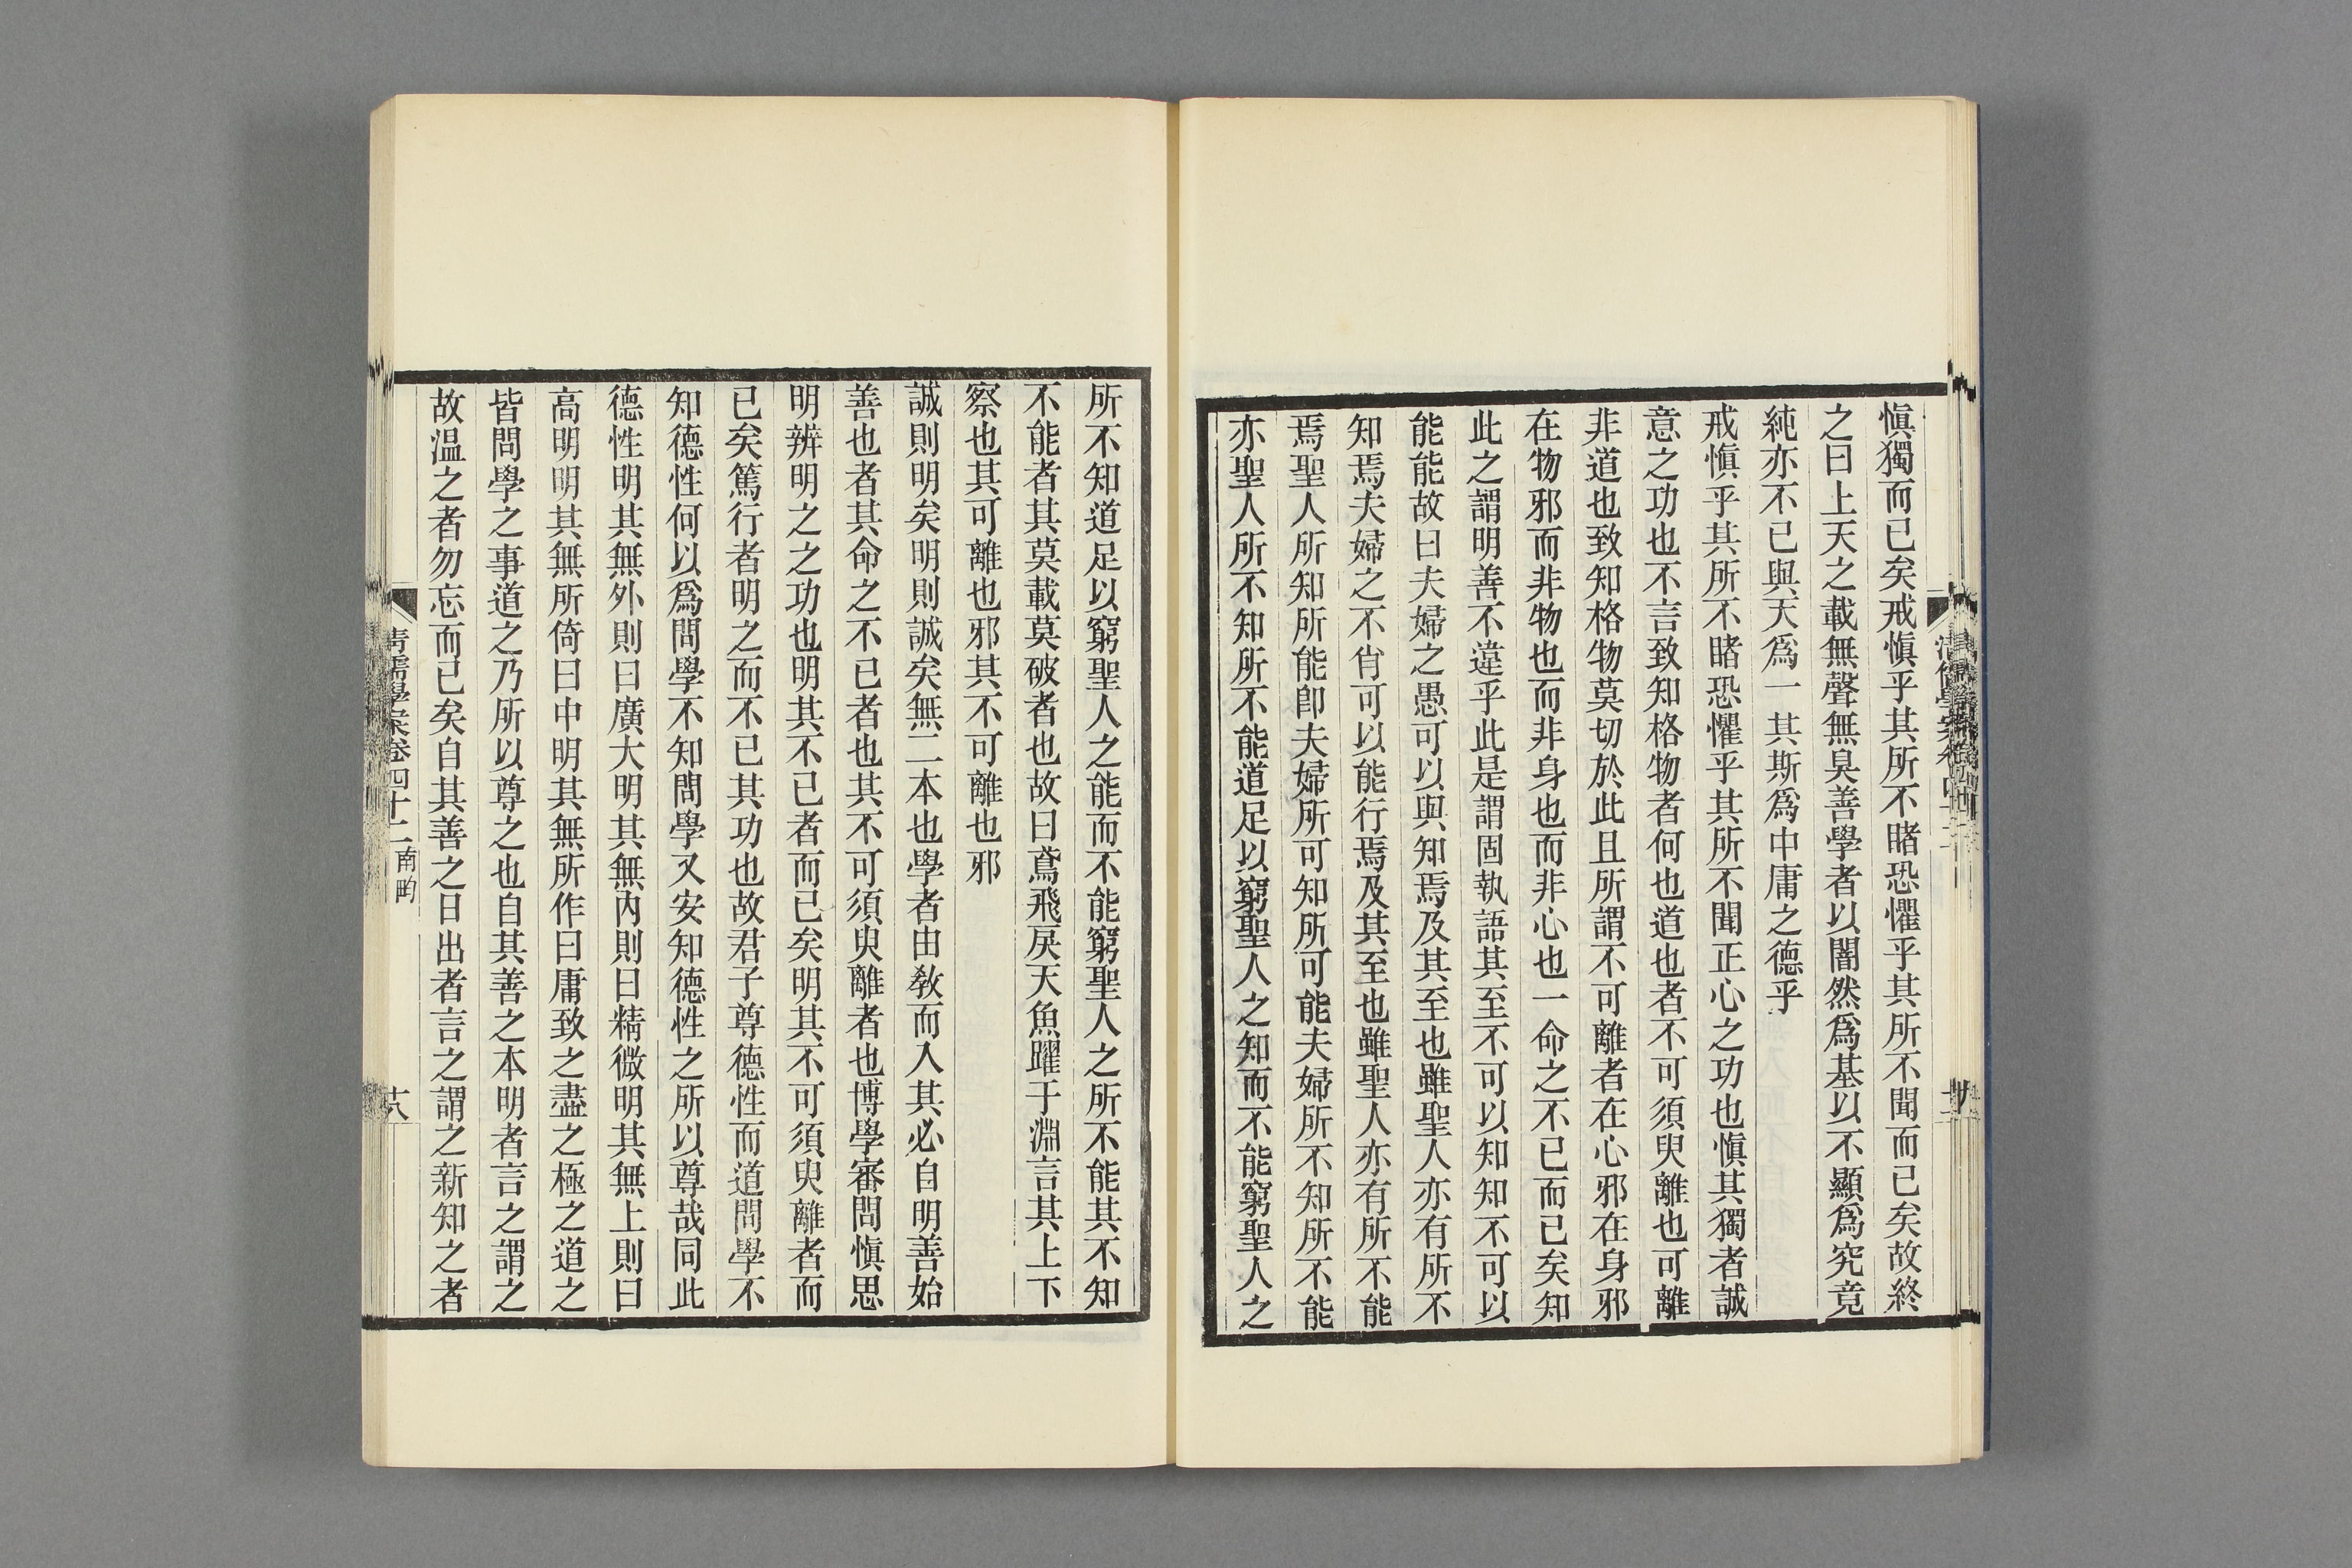 愼獨而已矣戒愼乎其所不睹恐懼乎其所不聞而已矣故終
之曰上天之載無聲無臭善學者以闇然爲基以不顯爲究竟
純亦不已與天爲一其斯爲中庸之德乎
戒愼乎其所不睹恐懼乎其所不聞正心之功也愼其獨者誠
意之功也不言致知格物者何也道也者不可須臾離也可離
非道也致知格物莫切於此且所謂不可離者在心邪在身邪
在物邪而非物也而非身也而非心也一命之不已而已矣知
此之謂明善不違乎此是謂固執語其至不可以知知不可以
能能故曰夫婦之愚可以與知焉及其至也雖聖人亦有所不
知焉夫婦之不肖可以能行焉及其至也雖聖人亦有所不能
焉聖人所知所能卽夫婦所可知所可能夫婦所不知所不能
亦聖人所不知所不能道足以窮聖人之知而不能窮聖人之
所不知道足以窮聖人之能而不能窮聖人之所不能其不知
不能者其莫載莫破者也故曰鳶飛戾天魚躍于淵言其上下
察也其可離也邪其不可離也邪
誠則明矣明則誠矣無二本也學者由敎而入其必自明善始
善也者其命之不已者也其不可須臾離者也博學審問愼思
明辨明之之功也明其不已者而已矣明其不可須臾離者而
已矣篤行者明之而不已其功也故君子尊德性而道問學不
知德性何以爲問學不知問學又安知德性之所以尊哉同此
德性明其無外則曰廣大明其無內則曰精微明其無上則曰
高明明其無所倚曰中明其無所作曰庸致之盡之極之道之
皆問學之事道之乃所以尊之也自其善之本明者言之謂之
故温之者勿忘而已矣自其善之日出者言之謂之新知之者
清儒學案卷四十二 南畇
十八